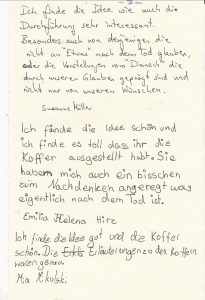 Ich finde die Idee wie auch die
Durchführung sehr interessant.
Besonders auch von denjenigen die
nicht an "Etwas" nach dem Tod glauben,
oder die Vorstellungen vom Danach die
durch unseren Glauben geprägt sind und
nicht nur von unseren Wünschen.
Susanne
Ich fände die Idee schön und
ich finde es toll dass ihr die
Koffer ausgestellt habt. Sie
haben mich auch ein bisschen
zum Nachdenken angeregt was
eigentlich nach dem Tod ist.
Emilia Helena Hirz
Ich finde die Idee gut und die Koffer
schön. Die Erläuterungen zu den Koffern
waren genau.
Mia Mikulski